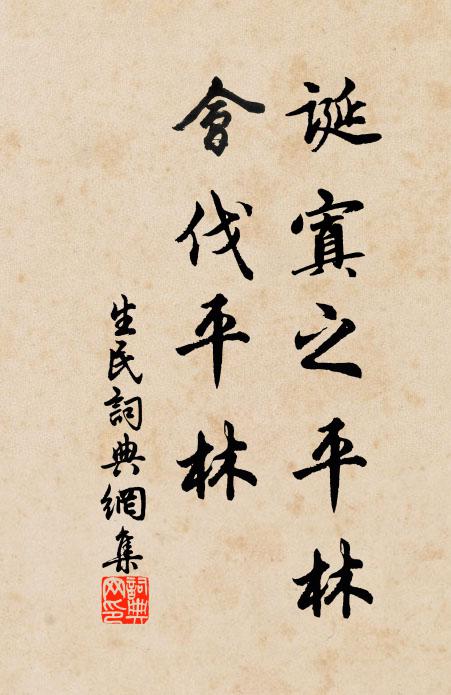 誕寘之平林
會伐平林
生民詞典網集
詞典网印